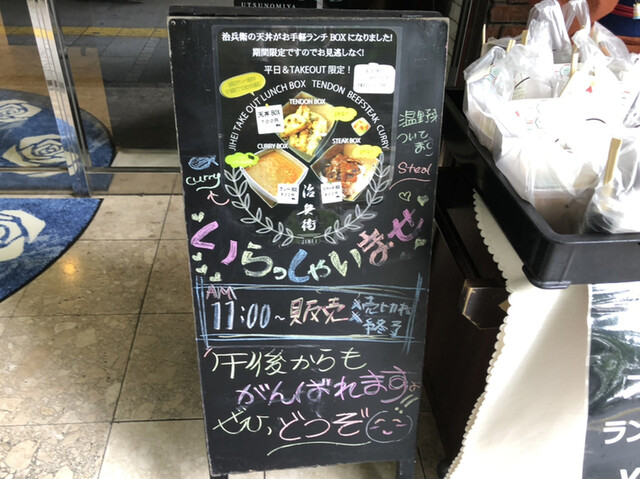 UTSUNOMIYA
治兵衛の天丼がお手軽ランチBOXになりました!
期間限定ですのでお見逃しなく!
平日&TAKEOUT限定!
JIHEI TAKE OUT LUNCH BOX TENDON BEEFSTEAK CURRY
TENDON BOX
天丼 BOX
CURRY BOX
STEAK BOX
治兵衛
JIHEI
curry
温野菜
ついてます
Steal
いらっしゃいませ
AM
11:00~販売
※売り切れ
※終了
午後からも
がんばれますよ
ぜひ、どうぞ
ラン